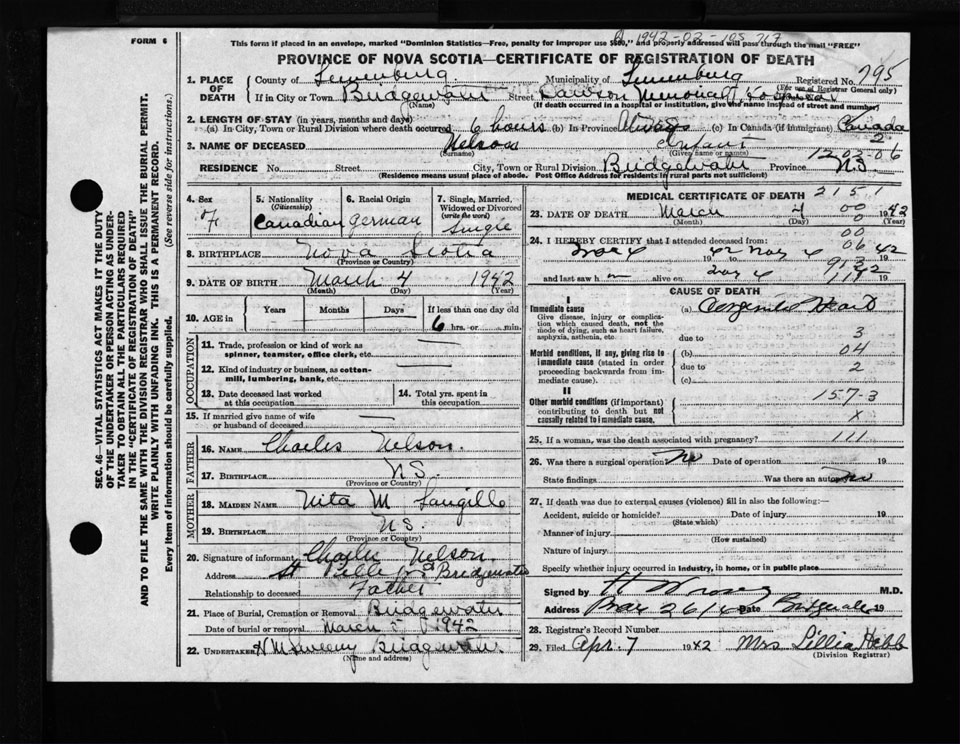 FORM 6
1942-02-105 767
This form if placed in an envelope, marked "Dominion Statistics—Free, penalty for improper use $300," and properly addressed will pass through the mail "FREE"
PROVINCE OF NOVA SCOTIA—CERTIFICATE OF REGISTRATION OF DEATH
1. PLACE OF DEATH County of Lunenburg. Municipality of Lunenburg Registered No. 795
(For use of Registrar General only)
If in City or Town Bridgewater Street Dawson Memorial Hospital
(Name) (If death occurred in a hospital or institution, give the name instead of street and number)
2. LENGTH OF STAY (in years, months and days)
(a) In City, Town or Rural Division where death occurred 6 hours (b) In Province Always (c) In Canada (if immigrant) Canada
2
3. NAME OF DECEASED Nelson Infant
(Surname) (Given name or names)
12-02-06
RESIDENCE No. Street City, Town or Rural Division Bridgewater Province N.S.
(Residence means usual place of abode. Post Office Address for residents in rural parts not sufficient)
4. Sex F
5. Nationality (Citizenship) Canadian
6. Racial Origin German
7. Single, Married, Widowed or Divorced (write the word) Single
8. BIRTHPLACE Nova Scotia
(Province or Country)
9. DATE OF BIRTH March 4 1942
(Month) (Day) (Year)
10. AGE in Years Months Days If less than one day old
6 hrs. or min.
OCCUPATION
11. Trade, profession or kind of work as spinner, teamster, office clerk, etc. —
12. Kind of industry or business, as cotton-mill, lumbering, bank, etc. —
13. Date deceased last worked at this occupation
14. Total yrs. spent in this occupation
15. If married give name of wife or husband of deceased —
FATHER
16. NAME Charles Nelson.
17. BIRTHPLACE N.S.
(Province or Country)
MOTHER
18. MAIDEN NAME Nita M Langille
19. BIRTHPLACE N.S.
(Province or Country)
20. Signature of informant Charles Nelson
Address Bridgewater
Relationship to deceased Father
21. Place of Burial, Cremation or Removal Bridgewater
Date of burial or removal March 5 1942
22. UNDERTAKER Sweeny Bridgewater.
(Name and address)
MEDICAL CERTIFICATE OF DEATH
2151
23. DATE OF DEATH March 4 1942
(Month) (Day) (Year)
00
0
24. I HEREBY CERTIFY that I attended deceased from:
00
06
4 1942 to 4 1942
and last saw h alive on 4 1942
CAUSE OF DEATH
I
Immediate cause
Give disease, injury or complication which caused death, not the mode of dying, such as heart failure, asphyxia, asthenia, etc.
(a) Congenital Heart
due to 3
Morbid conditions, if any, giving rise to immediate cause (stated in order proceeding backwards from immediate cause).
(b) 04
due to 2
(c)
II
Other morbid conditions (if important) contributing to death but not causally related to immediate cause.
157-3
X
25. If a woman, was the death associated with pregnancy? 111
26. Was there a surgical operation No Date of operation 19
State findings Was there an autopsy No
27. If death was due to external causes (violence) fill in also the following:—
Accident, suicide or homicide? Date of injury 19
(State which)
Manner of injury
(How sustained)
Nature of injury
Specify whether injury occurred in industry, in home, or in public place
Signed by M.D.
Address Box Date Bridgewater 19
28. Registrar's Record Number
29. Filed Apr. 7 1942 Mrs Lillia Hebb
(Division Registrar)
SEC. 46—VITAL STATISTICS ACT MAKES IT THE DUTY
OF THE UNDERTAKER OR PERSON ACTING AS UNDER-
TAKER TO OBTAIN ALL THE PARTICULARS REQUIRED
IN THE "CERTIFICATE OF REGISTRATION OF DEATH"
AND TO FILE THE SAME WITH THE DIVISION REGISTRAR WHO SHALL ISSUE THE BURIAL PERMIT.
WRITE PLAINLY WITH UNFADING INK. THIS IS A PERMANENT RECORD.
Every item of information should be carefully supplied. (See reverse side for instructions.)